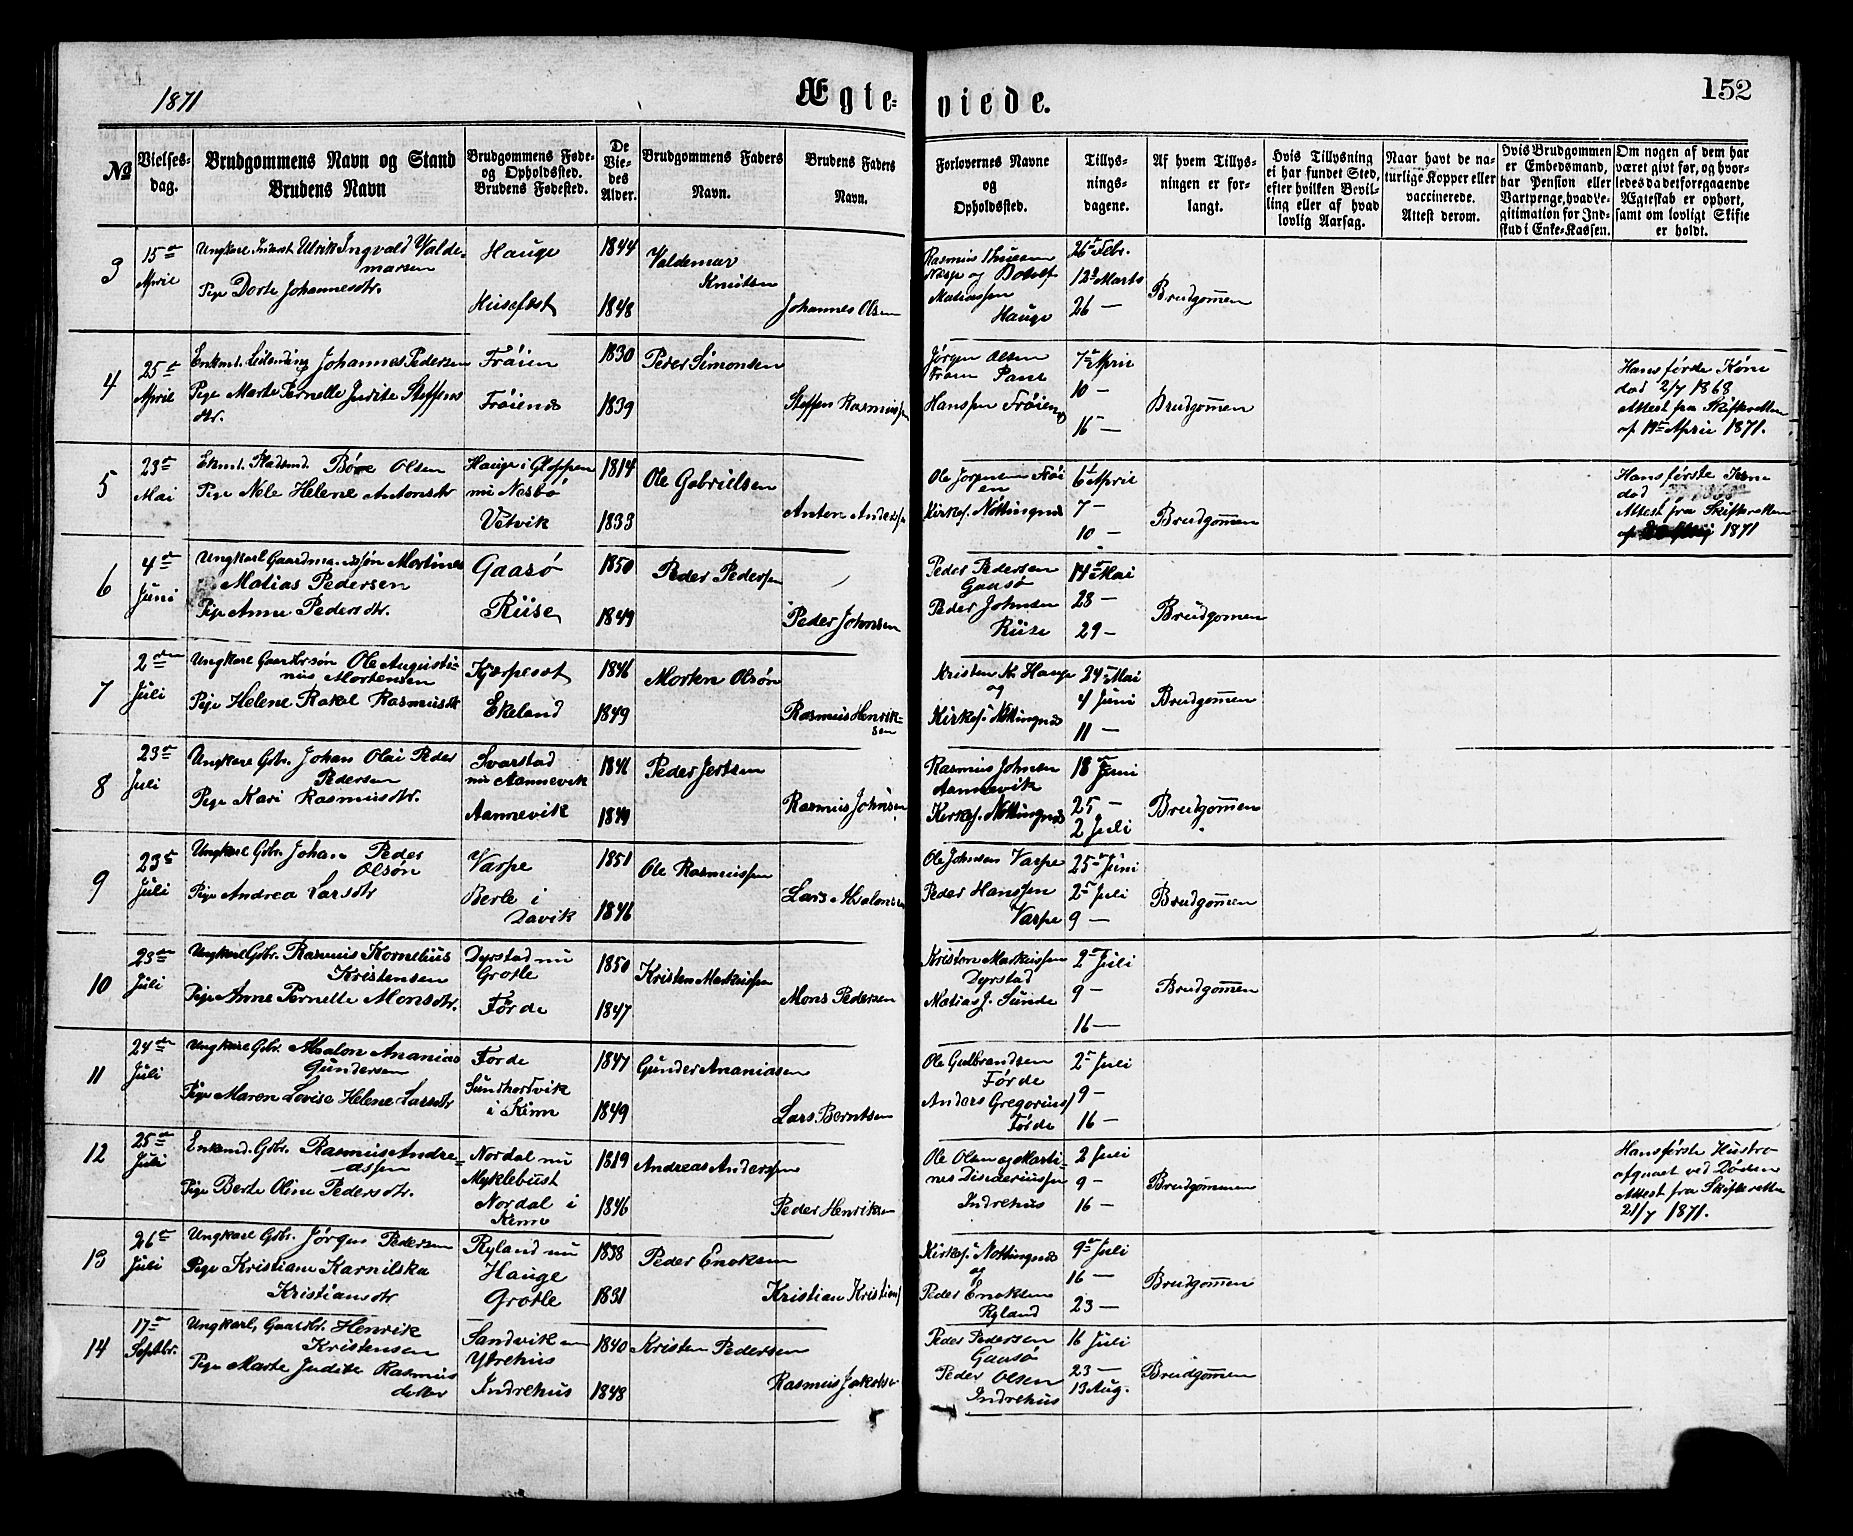 1871
Ægteviede.
152
No
Vielsesdag.
Brudgommens Navn og Stand
Brudens Navn
Brudgommens Føde-
og Opholdssted.
Brudens Fødested.
De
Vie-
des
Alder.
Brudgommens Faders
Navn.
Brudens Faders
Navn.
Forlovernes Navne
og
Opholdssted.
Tillys-
nings-
dagene.
Af hvem Tillys-
ningen er for-
langt.
Hvis Tillysning
ei har fundet Sted,
efter hvilken Bevil-
ling eller af hvad
lovlig Aarsag.
Naar havt de na-
turlige Kopper eller
vaccinerede.
Attest derom.
Hvis Brudgommen
er Embedsmand,
har Pension eller
Vartpenge, hvad Le-
gitimation for Ind-
skud i Enke-Kassen.
Om nogen af dem har
været givt før, og hvor-
ledes da det foregaaende
Ægteskab er ophørt,
samt om lovligt Skifte
er holdt.
3
15de April
Ungkarl Ulrik Ingvald Valde-
marsen
Pige Dorte Johannesdtr.
Hauge
Husefest
1844
1848
Valdemar
Knutsen
Johannes Olsen
Rasmus
og
Matiassen
Hauge
26de Febr.
12te Marts
26 —
Brudgommen
4
25de April
Enkmd. Johannes Pedersen
Pige Marte Pernelle Judite Steffens
dtr.
Frøien
Frøienæs
1830
1839
Peder Simonsen
Steffen Rasmussen
Jørgen Olsen
Hanssen Frøien
7de April
10 —
16 —
Brudgommen
Hans første Kone
død 2/7 1868
Attest fra Skifteretten
af 19de April 1871.
5
23de Mai
Ekmd. Pladsmd. Børe Olsen
Pige Nele Helene Antonsdtr
Hauge i Gloppen
nu Nesbø
Vetvik
1814
1833
Ole Gabrielsen
Anton Anderssen
Ole Jørgensen Frøi
en
Kirkes. Nøttingnæs
6te April
7 —
10 —
Brudgommen
Hans første Kone
død
Attest fra Skifteretten
1871
6
4de Juni
Ungkarl Gaardmandssøn Mortines
Matias Pedersen
Pige Anne Pedersdtr.
Gaasø
Riise
1850
1849
Peder Pedersen
Peder Johnsen
Peder Pedersen
Gaasø
Peder Johnsen
Riise
14de Mai
28 —
29 —
Brudgomen
7
2den Juli
Ungkarl Gaardbrsøn Ole Augusti-
nus Mortensen
Pige Helene Rakel Rasmusdtr
Kjerpeset
Ekeland
1846
1849
Morten Olsøn
Rasmus Henrik-
sen
Kristen N. Hauge
og
Kirkes. Nøttingnæs
24de Mai
4 Juni
11 —
Brudgommen
8
23de Juli
Ungkarl Gbr. Johan Olai Peder
Pedersen
Pige Kari Rasmusdtr.
Svarstad
nu Aannevik
Aannevik
1846
1849
Peder Jertsen
Rasmus Johnsen
Rasmus Johnsen
Aannevik
Kirkes. Nøttingnæs
18de Juni
25 —
2 Juli
Brudgommen
9
23de Juli
Ungkarl Gbr. Johan Peder
Olsøn
Pige Andrea Larsdtr
Varpe
Berle i
Davik
1851
1846
Ole Rasmussen
Lars Absalonsen
Ole Johnsen Varpe
Peder Hanssen
Varpe
25de Juni
2den Juli
9 —
Brudgommen
10
23de Juli
Ungkarl Gbr. Rasmus Kornelius
Kristensen
Pige Anne Pernelle Monsdtr.
Dyrstad nu
Grotle
Førde
1850
1847
Kristen Markussen
Mons Pedersen
Kristen Markussen
Dyrstad
Matias J. Sunde
2den Juli
9 —
16 —
Brudgommen
11
24de Juli
Ungkarl Gbr. Absalon Ananias
Gundersen
Pige Maren Lovise Helene Larsdtr
Førde
i Kinn
1847
1849
Gunder Ananiasen
Lars Berntsen
Ole Gulbrandsen
Førde
Anders Gregorius
Førde
2den Juli
9 —
16 —
12
25de Juli
Enkemd. Gbr. Rasmus Andre-
assen
Pige Berte Oline Pedersdtr.
Nordal nu
Myklebust
Nordal i
Kinn
1819
1846
Andreas Anderssen
Peder Henriksen
Ole Olsen og Marti-
nes Disideriussen
Indrehus
2 Juli
9 —
16 —
Brudgommen
Hans første Hustro
afgaaet ved Døden
Attest fra Skifteretten
21/7 1871.
13
26de Juli
Ungkarl Gbr. Jørgen Pedersen
Pige Kristiane Karnilska
Kristiansdtr
Ryland nu
Hauge
Grotle
1838
1831
Peder Enoksen
Kristian Kristians
Kirkes. Nøttingnæs
og
Peder Enoksen
Ryland
9de Juli
16 —
23 —
Brudgommen
14
17de Septbr.
Ungkarl, Gaardbr. Henrik
Kristensen
Pige Marte Judite Rasmus
datter
Sandvik
Ytrehus
Indrehus
1840
1848
Kristen Pedersen
Rasmus Jakobsen
Peder Pedersen
Gaasø
Peder Olsen
Indrehus
16 Juli
23 —
13 Aug.
Brudgommen